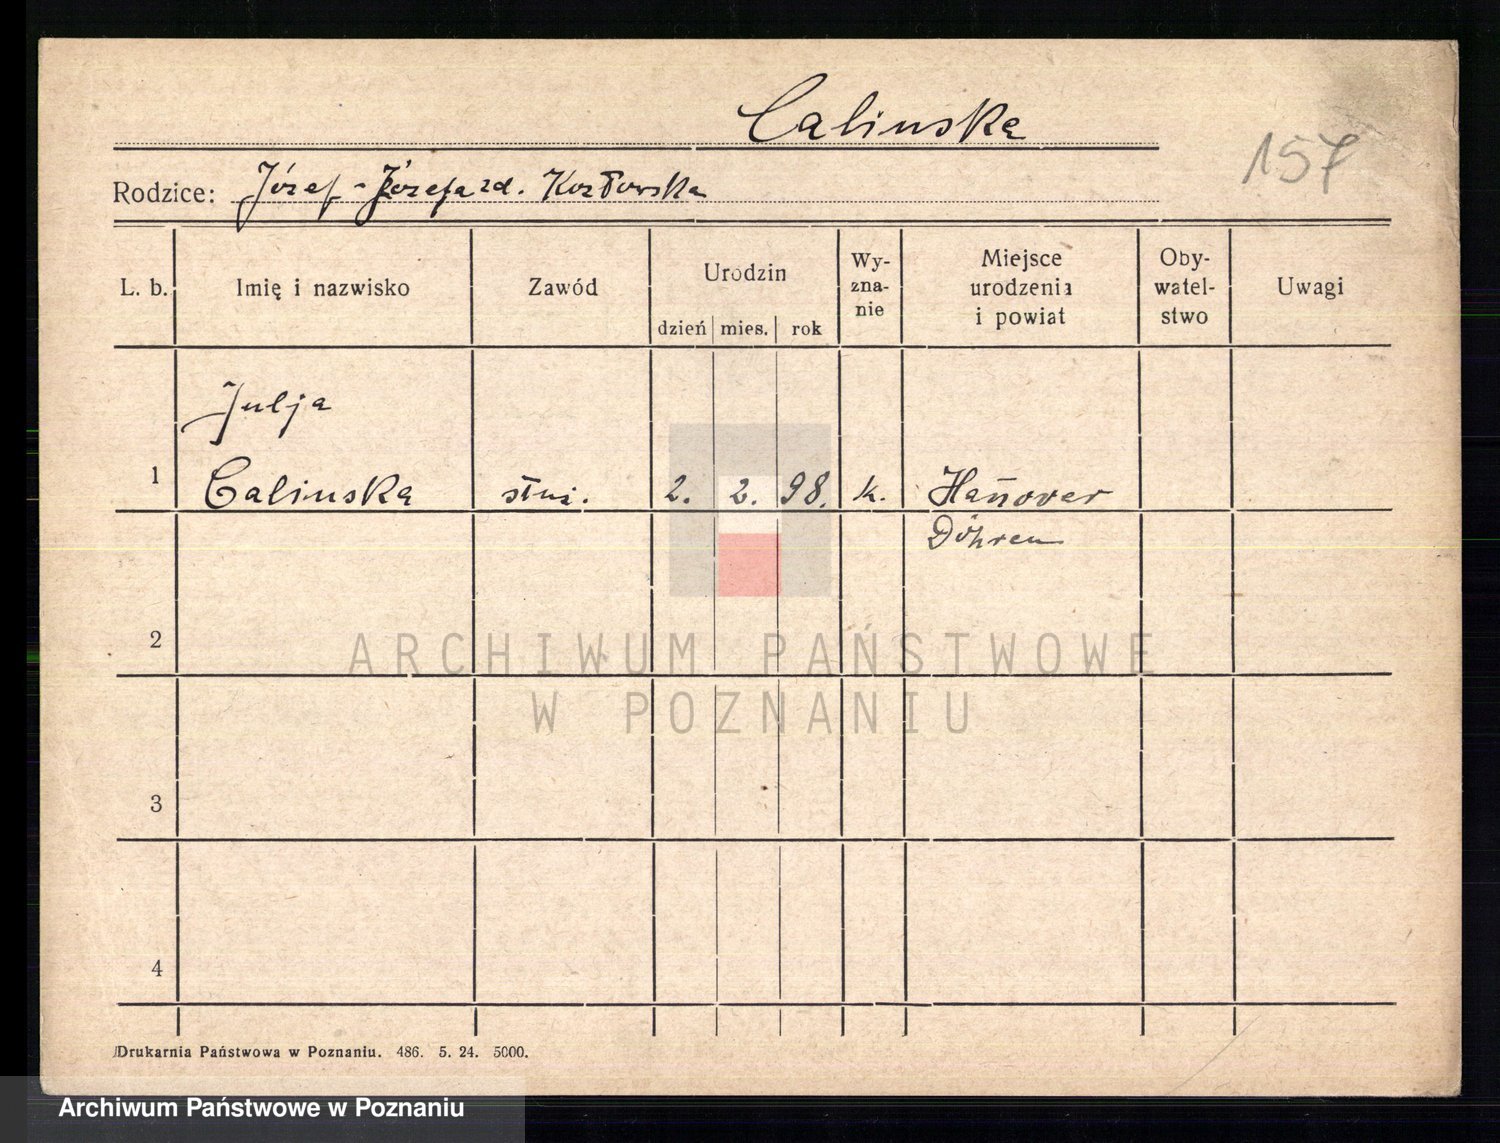 Calinska
157
Rodzice: Józef - Józefa zd. Kozłowska
L. b.
Imię i nazwisko
Zawód
Urodzin
dzień mies. rok
Wy-
zna-
nie
Miejsce
urodzenia
i powiat
Oby-
watel-
stwo
Uwagi
Julja
1 Calinska służ. 2. 2. 98. k. Hañover
Döhren
2
ARCHIWUM PAŃSTWOWE
W POZNANIU
3
4
Drukarnia Państwowa w Poznaniu. 486. 5. 24. 5000.
Archiwum Państwowe w Poznaniu